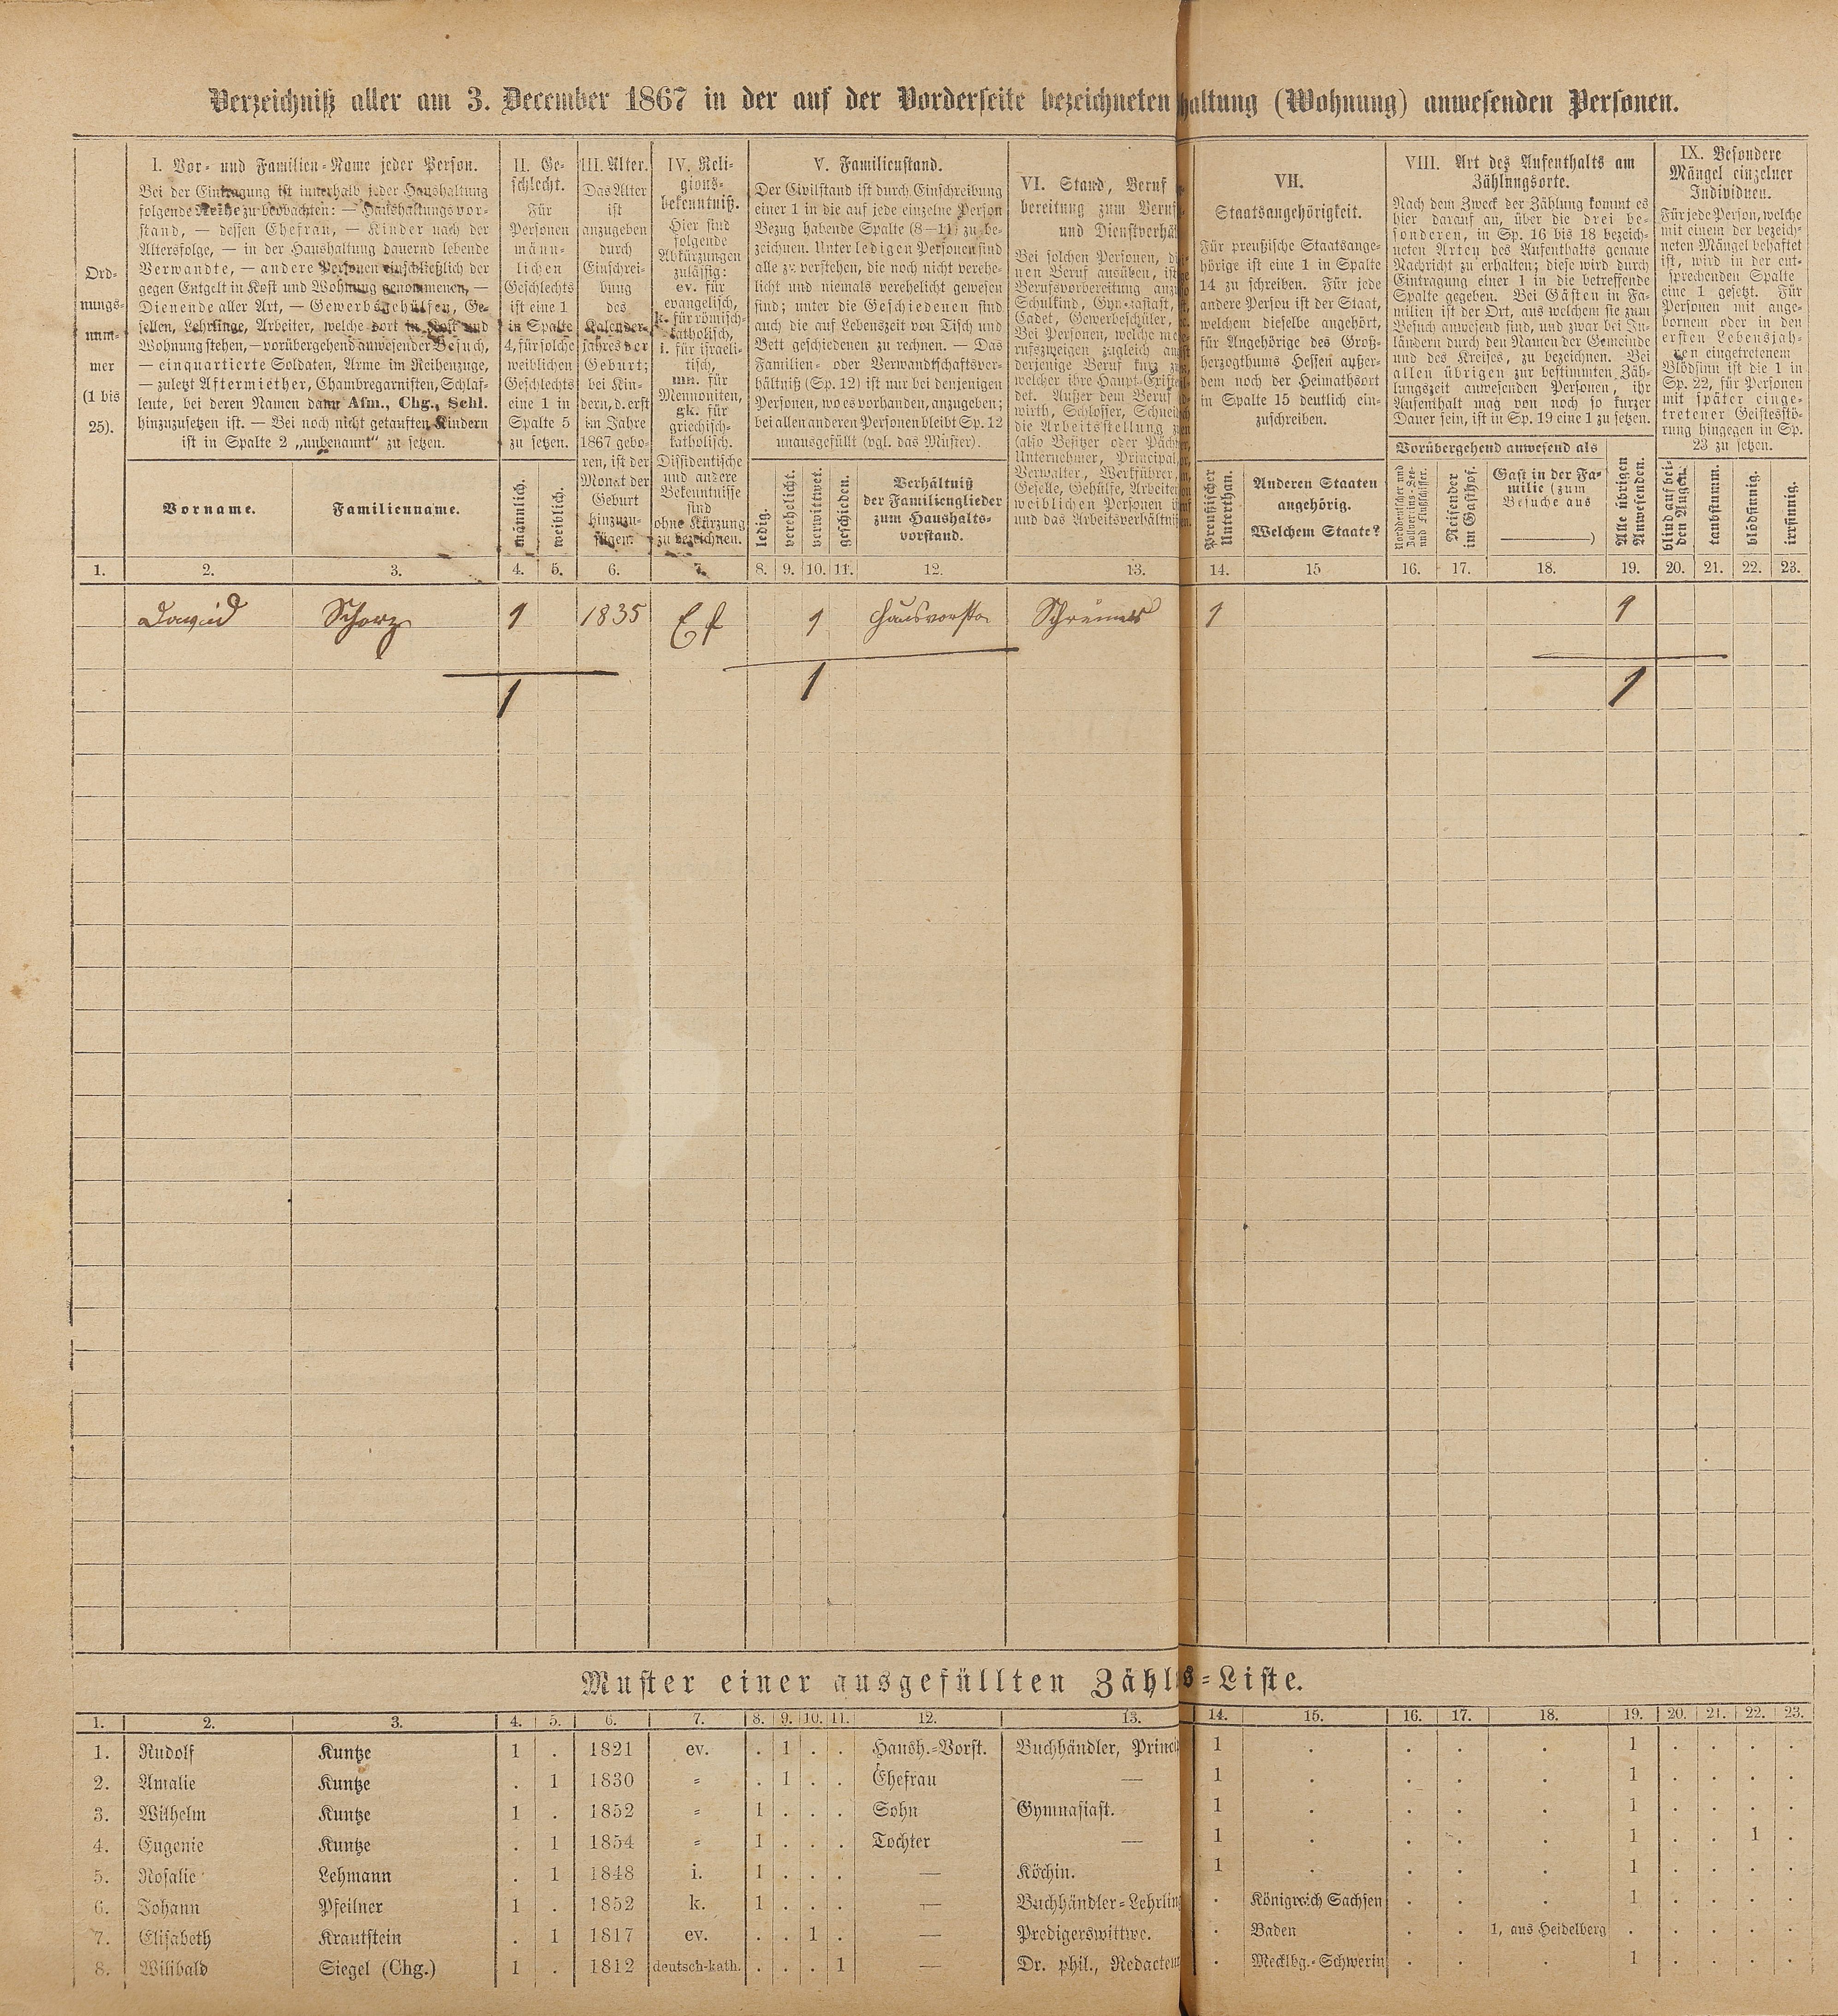 Verzeichniß aller am 3. December 1867 in der auf der Vorderseite bezeichneten haltung (Wohnung) anwesenden Personen.
Ord-
nungs-
num-
mer
(1 bis
25).
I. Vor- und Familien-Name jeder Person.
Bei der Eintragung ist innerhalb jeder Haushaltung
folgende Reihe zu beobachten: — Haushaltungsvor-
stand, — dessen Ehefrau, — Kinder nach der
Altersfolge, — in der Haushaltung dauernd lebende
Verwandte, — andere Personen einschließlich der
gegen Entgelt in Kost und Wohnung genommenen, —
Dienende aller Art, — Gewerbsgehülfen, Ge-
sellen, Lehrlinge, Arbeiter, welche dort in Kost und
Wohnung stehen, — vorübergehend anwesender Besuch,
— einquartierte Soldaten, Arme im Reihenzuge,
— zuletzt Aftermiether, Chambregarnisten, Schlaf-
leute, bei deren Namen dann Afm., Chg., Schl.
hinzuzusetzen ist. — Bei noch nicht getauften Kindern
ist in Spalte 2 „unbenannt“ zu setzen.
Vorname.
Familienname.
II. Ge-
schlecht.
Für
Personen
männ-
lichen
Geschlechts
ist eine 1
in Spalte
4, für solche
weiblichen
Geschlechts
eine 1 in
Spalte 5
zu setzen.
männlich.
weiblich.
III. Alter.
Das Alter
ist
anzugeben
durch
Einschrei-
bung
des
Kalender-
jahres der
Geburt;
bei Kin-
dern, d. erst
im Jahre
1867 gebo-
ren, ist der
Monat der
Geburt
hinzuzu-
fügen.
IV. Reli-
gions-
bekenntniß.
Hier sind
folgende
Abkürzungen
zulässig:
ev. für
evangelisch,
k. für römisch-
katholisch,
i. für israeli-
tisch,
mn. für
Mennoniten,
gk. für
griechisch-
katholisch.
Dissidentische
und andere
Bekenntnisse
sind
ohne Kürzung
zu bezeichnen.
V. Familienstand.
Der Civilstand ist durch Einschreibung
einer 1 in die auf jede einzelne Person
Bezug habende Spalte (8—11) zu be-
zeichnen. Unter ledigen Personen sind
alle zu verstehen, die noch nicht verehe-
licht und niemals verehelicht gewesen
sind; unter die Geschiedenen sind
auch die auf Lebenszeit von Tisch und
Bett geschiedenen zu rechnen. — Das
Familien- oder Verwandtschaftsver-
hältniß (Sp. 12) ist nur bei denjenigen
Personen, wo es vorhanden, anzugeben;
bei allen anderen Personen bleibt Sp. 12
unausgefüllt (vgl. das Muster).
ledig.
verehelicht.
verwittwet.
geschieden.
Verhältniß
der Familienglieder
zum Haushalts-
vorstand.
VI. Stand, Beruf
bereitung zum Beruf
und Dienstverhä
Bei solchen Personen, di
nen Beruf ausüben, ist
Berufsvorbereitung anzu
Schulkind, Gymnasiast,
Cadet, Gewerbeschüler,
Bei Personen, welche me
rufszweigen zugleich an
derjenige Beruf kurz
welcher ihre Haupt-Existen
det. Außer dem Beruf
wirth, Schlosser, Schnei
die Arbeitsstellung
(also Besitzer oder Päch
Unternehmer, Principal,
Verwalter, Werkführer,
Geselle, Gehülfe, Arbeiter
weiblichen Personen
und das Arbeitsverhältniß
VII.
Staatsangehörigkeit.
Für preußische Staatsange-
hörige ist eine 1 in Spalte
14 zu schreiben. Für jede
andere Person ist der Staat,
welchem dieselbe angehört,
für Angehörige des Groß-
herzogthums Hessen außer-
dem noch der Heimathsort
in Spalte 15 deutlich ein-
zuschreiben.
Preußischer
Unterthan.
Anderen Staaten
angehörig.
Welchem Staate?
VIII. Art des Aufenthalts am
Zählungsorte.
Nach dem Zweck der Zählung kommt es
hier darauf an, über die drei be-
sonderen, in Sp. 16 bis 18 bezeich-
neten Arten des Aufenthalts genaue
Nachricht zu erhalten; diese wird durch
Eintragung einer 1 in die betreffende
Spalte gegeben. Bei Gästen in Fa-
milien ist der Ort, aus welchem sie zum
Besuch anwesend sind, und zwar bei In-
ländern durch den Namen der Gemeinde
und des Kreises, zu bezeichnen. Bei
allen übrigen zur bestimmten Zäh-
lungszeit anwesenden Personen, ihr
Aufenthalt mag von noch so kurzer
Dauer sein, ist in Sp. 19 eine 1 zu setzen.
Vorübergehend anwesend als
Norddeutscher und
Zollvereins-See-
und Flußschiffer.
Reisender
im Gasthof.
Gast in der Fa-
milie (zum
Besuche aus
———)
Alle übrigen
Anwesenden.
IX. Besondere
Mängel einzelner
Individuen.
Für jede Person, welche
mit einem der bezeich-
neten Mängel behaftet
ist, wird in der ent-
sprechenden Spalte
eine 1 gesetzt. Für
Personen mit ange-
bornem oder in den
ersten Lebensjah-
ren eingetretenem
Blödsinn ist die 1 in
Sp. 22, für Personen
mit später einge-
tretener Geistesstö-
rung hingegen in Sp.
23 zu setzen.
blind auf bei-
den Augen.
taubstumm.
blödsinnig.
irrsinnig.
1. 2. 3. 4. 5. 6. 7. 8. 9. 10. 11. 12. 13. 14. 15 16. 17. 18. 19. 20. 21. 22. 23.
David Schorz 1 1835 1 Hausvorsta Schreiner 1 1
1 1 1
Muster einer ausgefüllten Zähl s-Liste.
1. 2. 3. 4. 5. 6. 7. 8. 9. 10. 11. 12. 13. 14. 15. 16. 17. 18. 19. 20. 21. 22. 23.
1. Rudolf Kuntze 1 . 1821 ev. . 1 . . Haush.-Vorst. Buchhändler, Princi 1 . . . . 1 . . . .
2. Amalie Kuntze . 1 1830 = . 1 . . Ehefrau — 1 . . . . 1 . . . .
3. Wilhelm Kuntze 1 . 1852 = 1 . . . Sohn Gymnasiast. 1 . . . . 1 . . . .
4. Eugenie Kuntze . 1 1854 = 1 . . . Tochter — 1 . . . . 1 . . 1 .
5. Rosalie Lehmann . 1 1848 i. 1 . . . — Köchin. 1 . . . . 1 . . . .
6. Johann Pfeilner 1 . 1852 k. 1 . . . — Buchhändler-Lehrling . Königreich Sachsen . . . 1 . . . .
7. Elisabeth Krautstein . 1 1817 ev. . . 1 . — Predigerswittwe. . Baden . . 1, aus Heidelberg . . . . .
8. Wilibald Siegel (Chg.) 1 . 1812 deutsch-kath. . . . 1 — Dr. phil., Redacteur . Mecklbg.-Schwerin . . . 1 . . . .